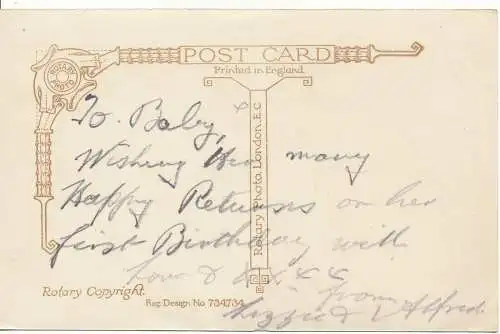 POST CARD
Printed in England
ROTARY PHOTO
To. Baby,
Wishing Her many
Happy Returns on her
first Birthday with
Love & x x x x
from
Lizzie & Alfred
Rotary Photo, London, E.C
Rotary Copyright.
Reg. Design No 734734.